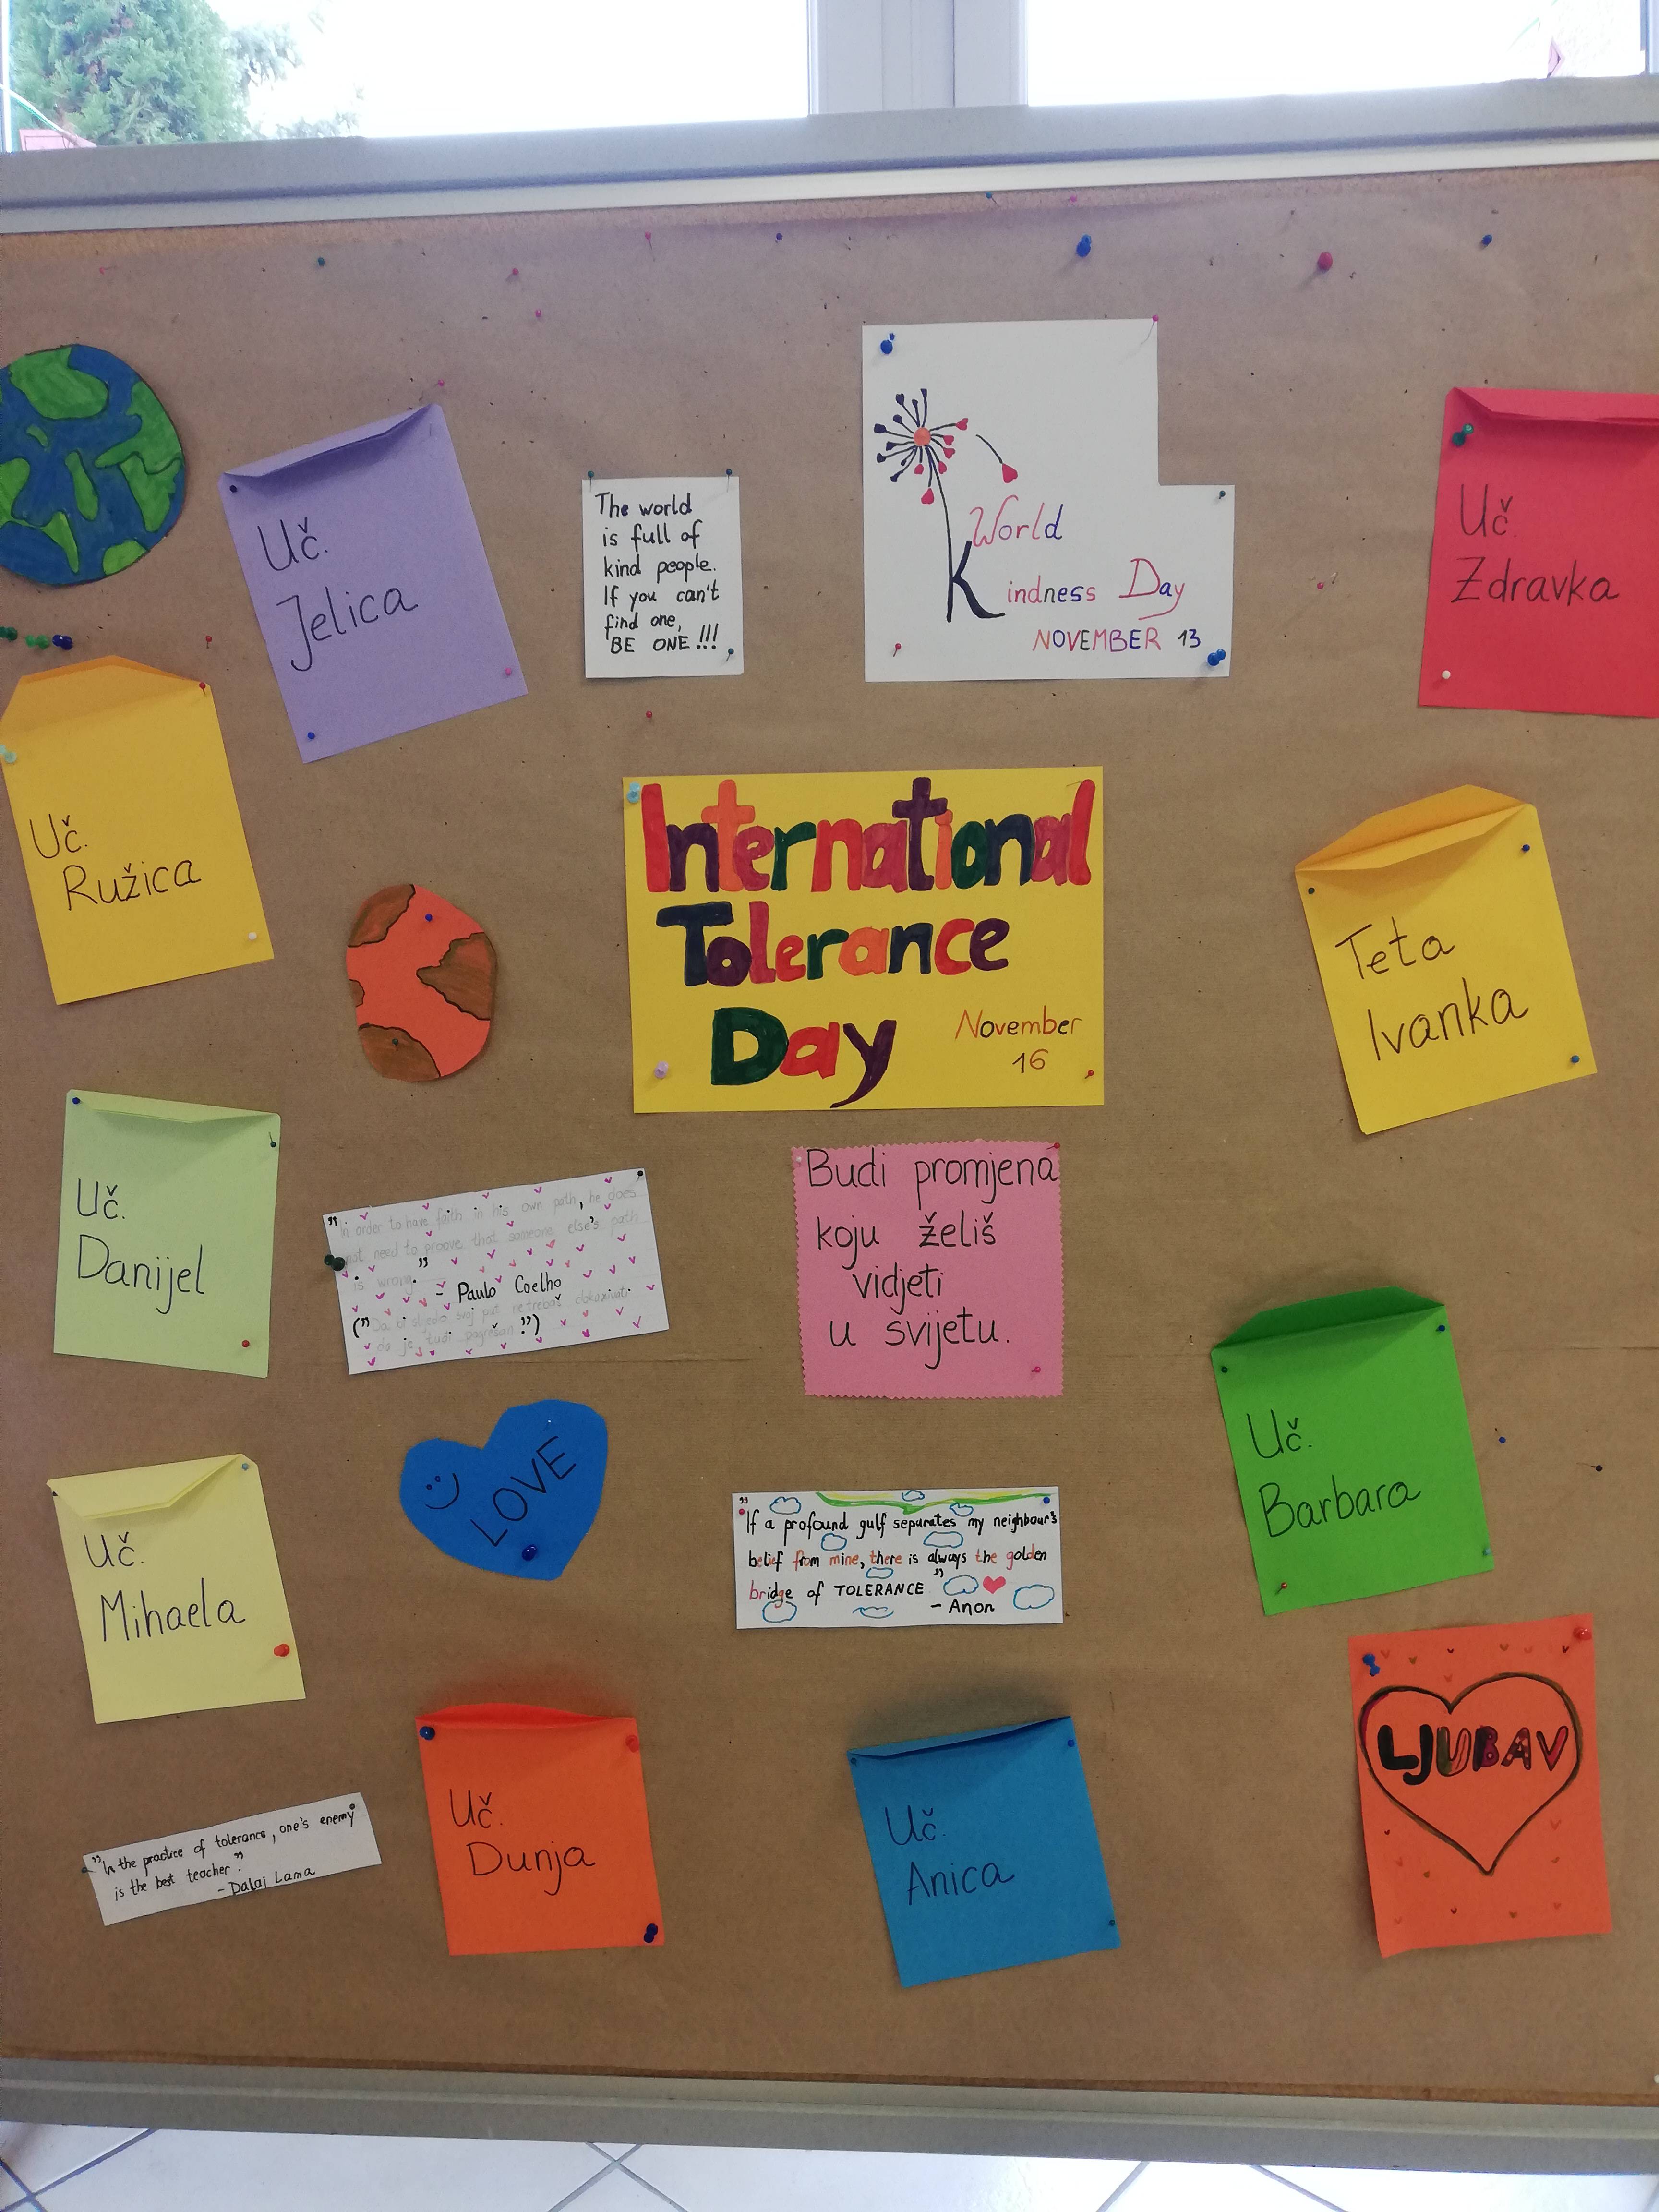 Uč.
Jelica
The world
is full of
kind people.
If you can't
find one,
BE ONE!!!
World
Kindness Day
NOVEMBER 13
Uč.
Zdravka
Uč.
Ružica
International
Tolerance
Day
November
16
Teta
Ivanka
Uč.
Danijel
"In order to have faith in his own path, he does
not need to proove that someone else's path
is wrong."
- Paulo Coelho
("Da bi slijedio svoj put ne trebaš dokazivati
da je tuđi pogrešan.")
Budi promjena
koju želiš
vidjeti
u svijetu.
Uč.
Barbara
LOVE
Uč.
Mihaela
"If a profound gulf separates my neighbour's
belief from mine, there is always the golden
bridge of TOLERANCE"
- Anon
LJUBAV
Uč.
Dunja
Uč.
Anica
"In the practice of tolerance, one's enemy
is the best teacher."
- Dalaj Lama